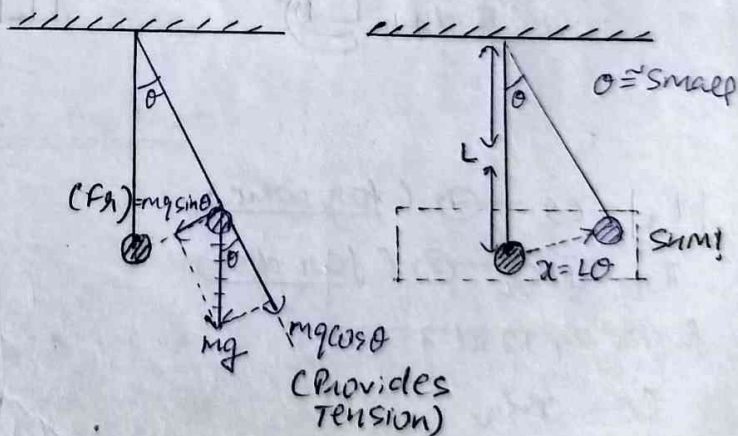 θ
(Fr)=mg sinθ
θ
mg
mg cosθ
(Provides
Tension)
θ
θ ≅ Small
L
x = Lθ
SHM!